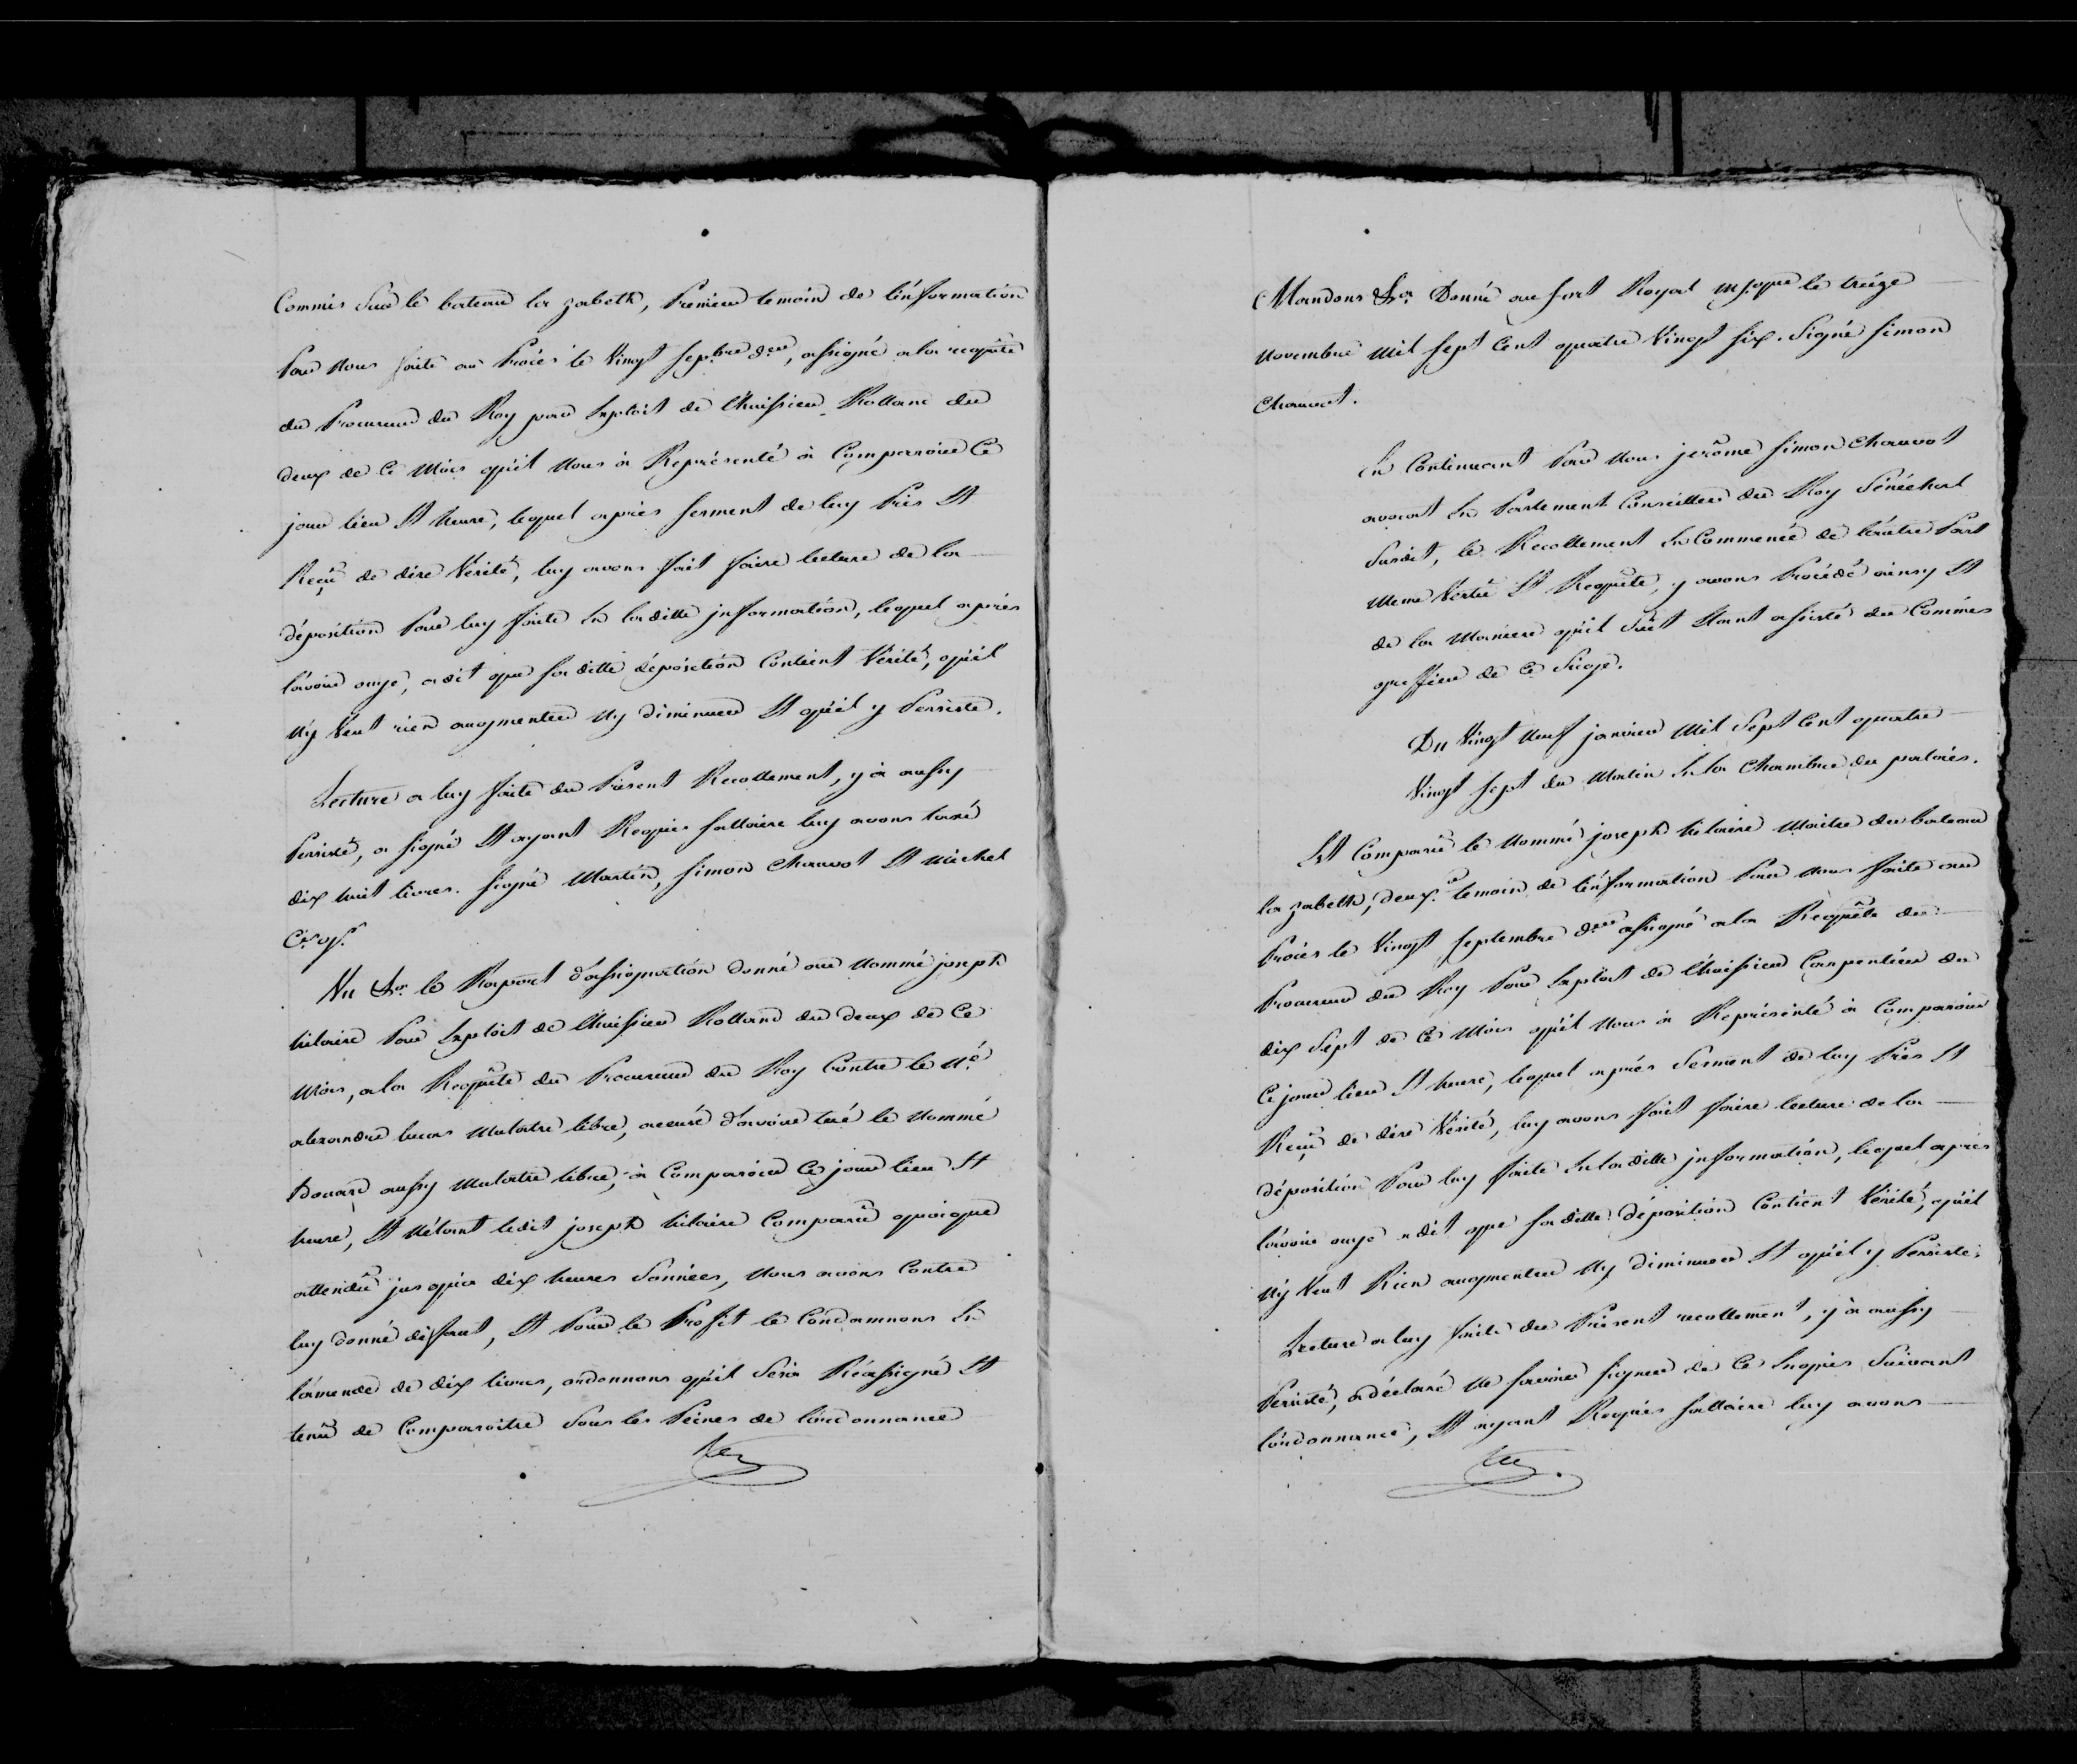 Commis Sur le bateau la zabeth, Premier temoin de l'information
Par Nous faite au Procès le Vingt Sepbre der, assigné a la requête
du Procureur du Roy par Exploit de l'huissier Rolland du
deux de Ce Mois qu'il Nous à Représenté à Comparoir Ce
jour lieu Et heure, lequel après serment de luy Pris Et
Reçû de dire Vérité, luy avons fait faire lecture de la
déposition Par luy faite En la ditte information, lequel après
l'avoir ouye, a dit que sa ditte déposition Contient Vérité, qu'il
N'y Veut rien augmenter Ny diminuer Et qu'il y Persiste.
Lecture a luy faite du Présent Recollement, y à aussy
Persisté, a signé Et ayant Requis sallaire luy avons taxé
dix huit livres. signé Martin, Simon Chauvot Et michel
Cis. gr.
Vu Par le Raport d'assignation donné au Nommé joseph
hilaire Par Exploit de l'huissier Rolland du deux de Ce
Mois, a la Requête du Procureur du Roy Contre le Né
alexandre lucas Mulatre libre, accusé d'avoir tué le Nommé
Edouard aussy Mulatre libre, à Comparoir Ce jour lieu Et
heure, Et N'étant ledit joseph hilaire Comparû quoique
attendû jusqu'a dix heures Sonnées, Nous avons Contre
luy donné déffaut, Et Pour le Profit le Condamnons En
l'amende de dix livres, ordonnons qu'il Sera Réassigné Et
tenû de Comparoitre Sous les Peines de l'ordonnance
Mandons &a Donné au fort Royal Mque le treize
Novembre Mil Sept Cent quatre Vingt six. Signé Simon
Chauvot.
En Continuant Par Nous jerôme Simon Chauvot
avocat En Parlement Conseiller du Roy Sénéchal
Susdit, le Recollement Encommencé de l'autre Part
Meme Vertû Et Requête, y avons Procédé ainsy Et
de la Maniere qu'il Suit Etant assisté du Commis
greffier de Ce Siege.
Du Vingt Neuf janvier Mil Sept Cent quatre
Vingt sept du Matin En la Chambre du palais.
Est Comparû le Nommé joseph hilaire Maitre du bateau
la zabeth, deux.e temoin de l'information Par Nous faite au
Procès le Vingt Septembre der assigné a la Requête du
Procureur du Roy Par Exploit de l'huissier Carpentier du
dix Sept de Ce Mois qu'il Nous à Représenté à Comparoir
Ce jour lieu Et heure, lequel après Serment de luy Pris Et
Reçû de dire Vérité, luy avons fait faire lecture de la
déposition Par luy faite En la ditte information, lequel après
l'avoir ouye a dit que sa ditte déposition Contient Vérité, qu'il
N'y Veut Rien augmenter Ny diminuer Et qu'il y Persiste.
Lecture a luy faite du Présent recollement, y à aussy
Persisté, a déclaré Ne savoir signer de Ce Enquis Suivant
l'ordonnance, Et ayant Requis sallaire luy avons